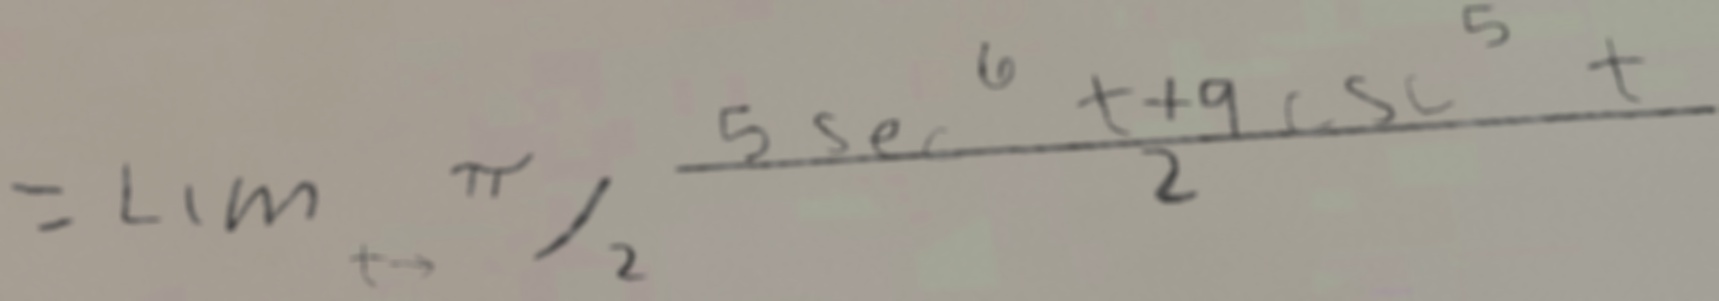 = Lim t→ π/2 (5 sec⁶ t+9 csc⁵ t)/2